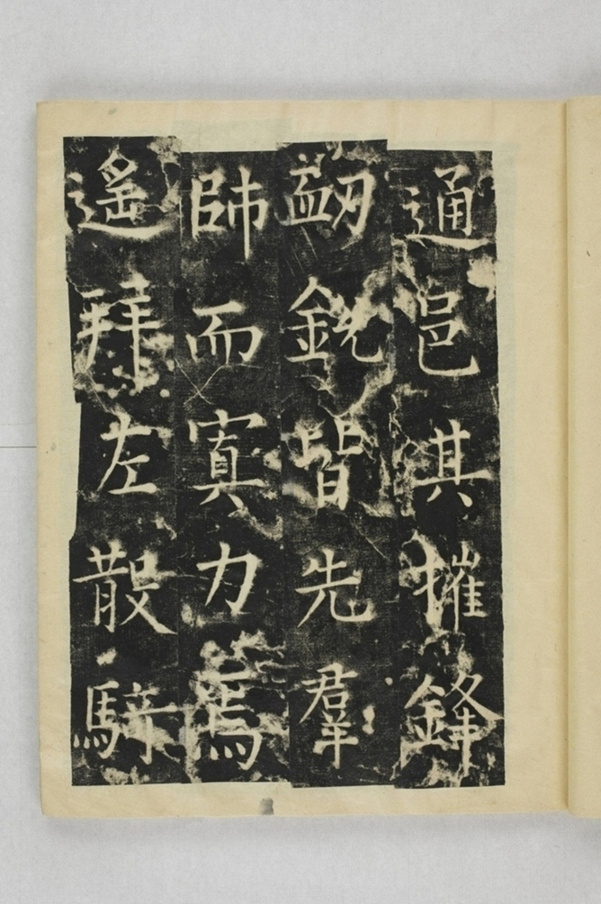 通邑其摧鋒
衂銳皆先羣
帥而寘力焉
遙拜左散騎